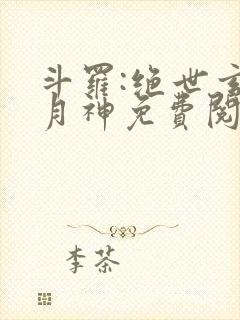 斗羅:绝世玄
月神免費閱
李茶